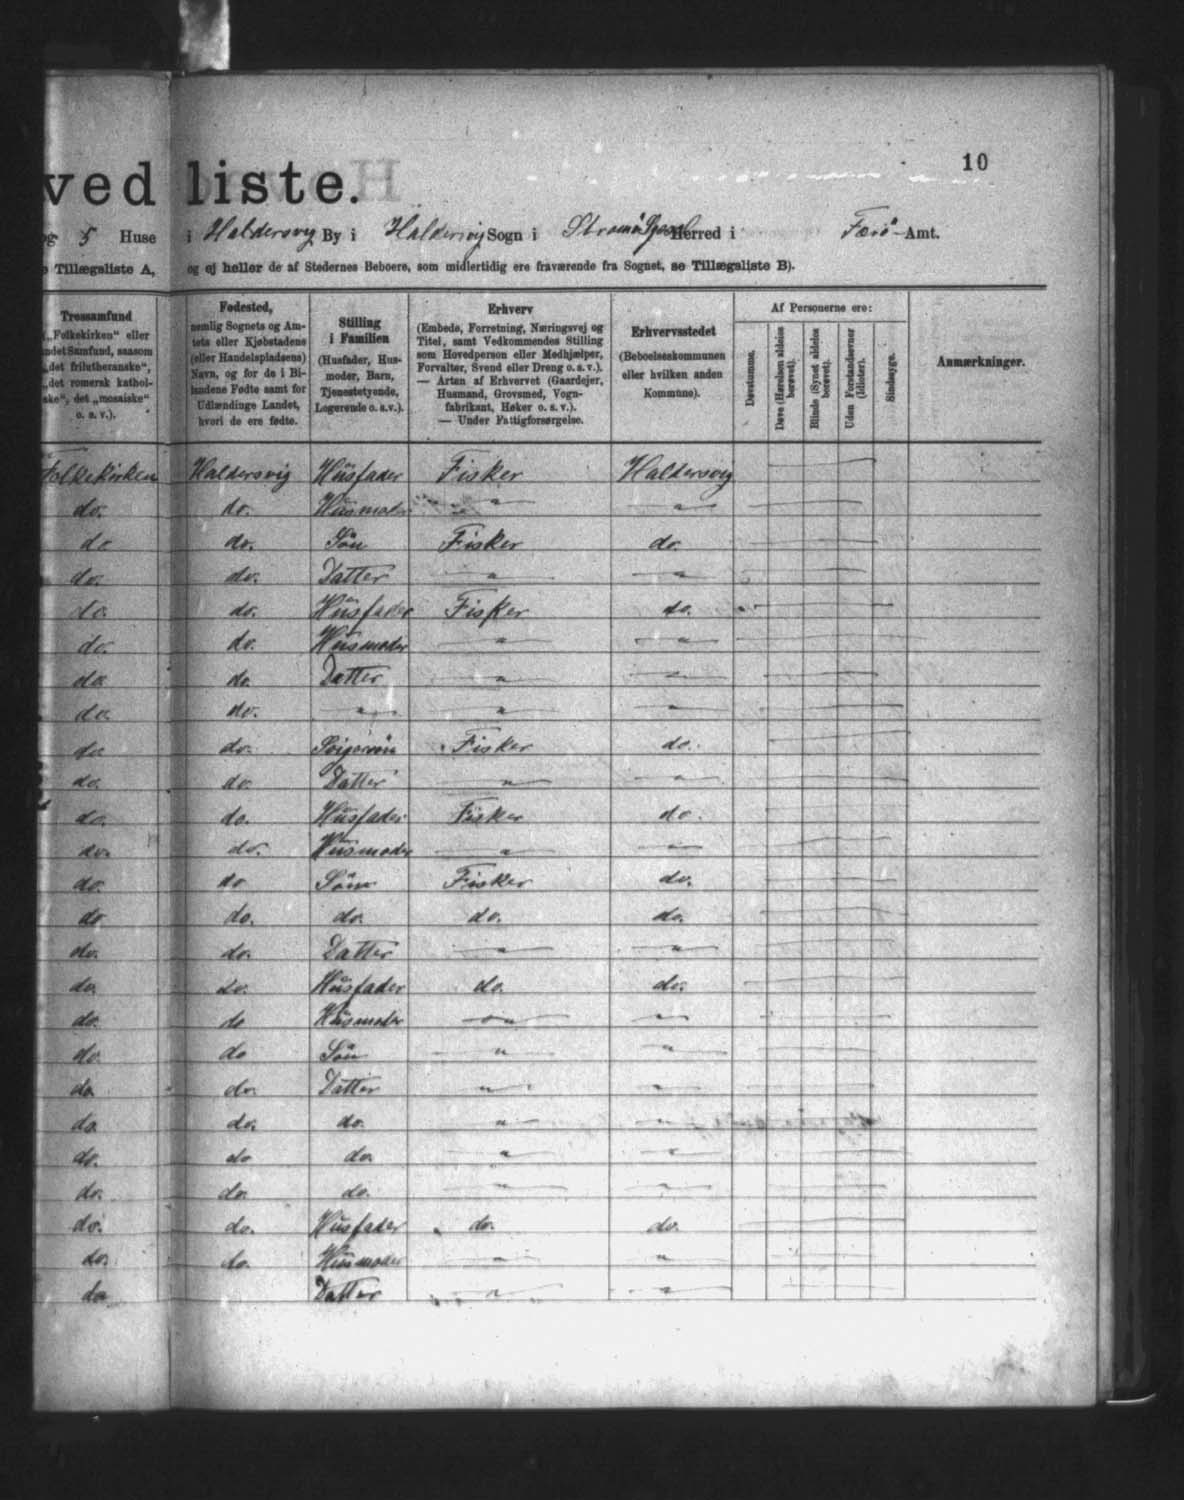 10
ved liste.
og 5 Huse i Haldersvig By i Haldersvig Sogn i Herred i Færö Amt.
Tillægsliste A, og ej heller de af Stedernes Beboere, som midlertidig ere fraværende fra Sognet, se Tillægsliste B).
Trossamfund
(„Folkekirken“ eller
andet Samfund, saasom
„det frilutheranske“,
„det romersk kathol-
ske“, det „mosaiske“
o. s. v.).
Fødested,
nemlig Sognets og Am-
tets eller Kjøbstadens
(eller Handelspladsens)
Navn, og for de i Bi-
landene Fødte samt for
Udlændinge Landet,
hvori de ere fødte.
Stilling
i Familien
(Husfader, Hus-
moder, Barn,
Tjenestetyende,
Logerende o. s. v.).
Erhverv
(Embede, Forretning, Næringsvej og
Titel, samt Vedkommendes Stilling
som Hovedperson eller Medhjælper,
Forvalter, Svend eller Dreng o. s. v.).
— Arten af Erhvervet (Gaardejer,
Husmand, Grovsmed, Vogn-
fabrikant, Høker o. s. v.).
— Under Fattigforsørgelse.
Erhvervsstedet
(Beboelseskommunen
eller hvilken anden
Kommune).
Af Personerne ere:
Døvstumme.
Døve (Hørelsen aldeles
berøvet).
Blinde (Synet aldeles
berøvet).
Uden Forstandsevner
(Idioter).
Sindssyge.
Anmærkninger.
Folkekirken Haldersvig Husfader Fisker Haldersvig
do. do. Husmoder " "
do do. Sön Fisker do.
do. do. Datter " "
do. do. Husfader Fisker do.
do. do. Husmoder " "
do. do. Datter " "
do. do. " " "
do. do. Fisker do.
do. do. Datter " "
do. do. Husfader Fisker do.
do. do. Husmoder "
do. do Sön Fisker do.
do do. do. do. do.
do. do. Datter " "
do. do. Husfader do. do.
do. do Husmoder " "
do. do Sön " "
do do. Datter " "
do. do. do. " "
do. do do. " "
do. do. do. " "
do. do. Husfader do. do.
do. do. Husmoder " "
do Datter " "